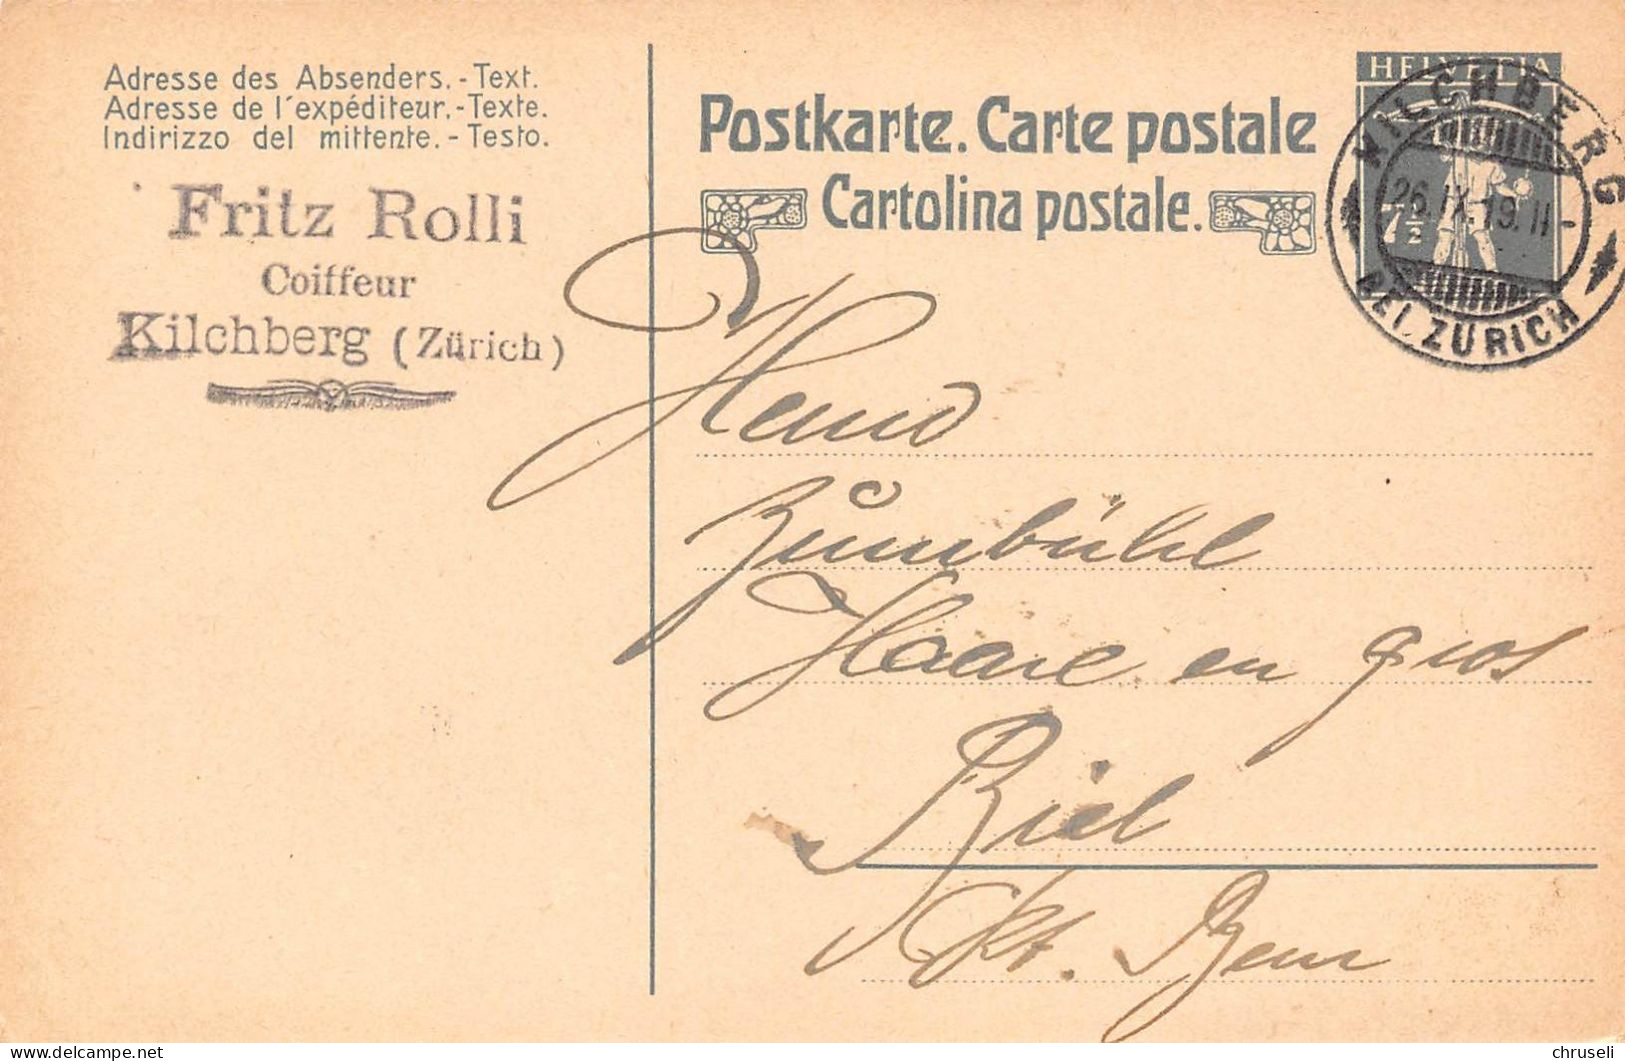 Adresse des Absenders.-Text.
Adresse de l'expéditeur.-Texte.
Indirizzo del mittente.-Testo.
Fritz Rolli
Coiffeur
Kilchberg (Zürich)
Postkarte. Carte postale
Cartolina postale.
HELVETIA
7½
KILCHBERG
26.IX.19.II
BEI ZÜRICH
Herrn
Zumbühl
Haare en gros
Biel
Kt. Bern
delcampe.net
chruseli